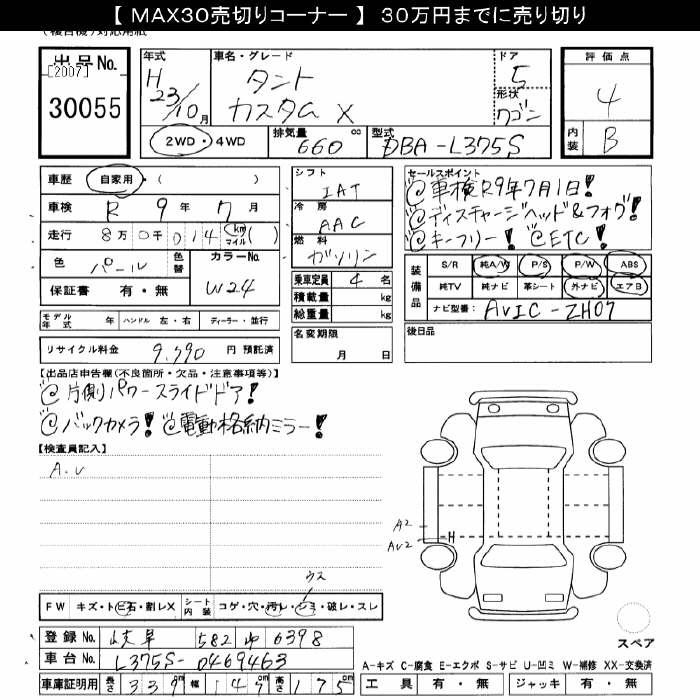 【 MAX30売切りコーナー 】 30万円までに売り切り
出品No.
[2007]
30055
年式 H 23/10月
車名・グレード タント カスタム X
ドア 5
形状 ワゴン
評価点 4
内装 B
2WD・4WD
排気量 660 cc
型式 DBA-L375S
車歴 自家用・( )
車検 R 9年 7月
走行 8万0千014 km マイル( )
色 パール 色替
カラーNo. W24
保証書 有・無
モデル年式 年 ハンドル 左・右 ディーラー・並行
リサイクル料金 9,990 円 預託済
シフト IAT
冷房 AAC
燃料 ガソリン
乗車定員 4 名
積載量 kg
総重量 kg
名変期限 月 日
セールスポイント
@車検R9年7月1日!
@ディスチャージヘッド&フォグ!
@キーフリー! @ETC!
装備品
S/R 純A/W P/S P/W ABS
純TV 純ナビ 革シート 外ナビ エアB
ナビ型番: AVIC-ZH07
後日品
【出品店申告欄(不良箇所・欠品・注意事項等)】
@片側パワースライドドア!
@バックカメラ! @電動格納ミラー!
【検査員記入】
A.U
A2
AU2
H
ウス
FW キズ・トビ石・割レX シート内装 コゲ・穴・汚レ・シミ・破レ・スレ
登録No. 岐阜 582 ゆ 6398
車台No. L375S-0469463
車庫証明用 長さ 339cm 幅 147cm 高さ 175cm
スペア
A-キズ C-腐食 E-エクボ S-サビ U-凹ミ W-補修 XX-交換済
工具 有・無 ジャッキ 有・無